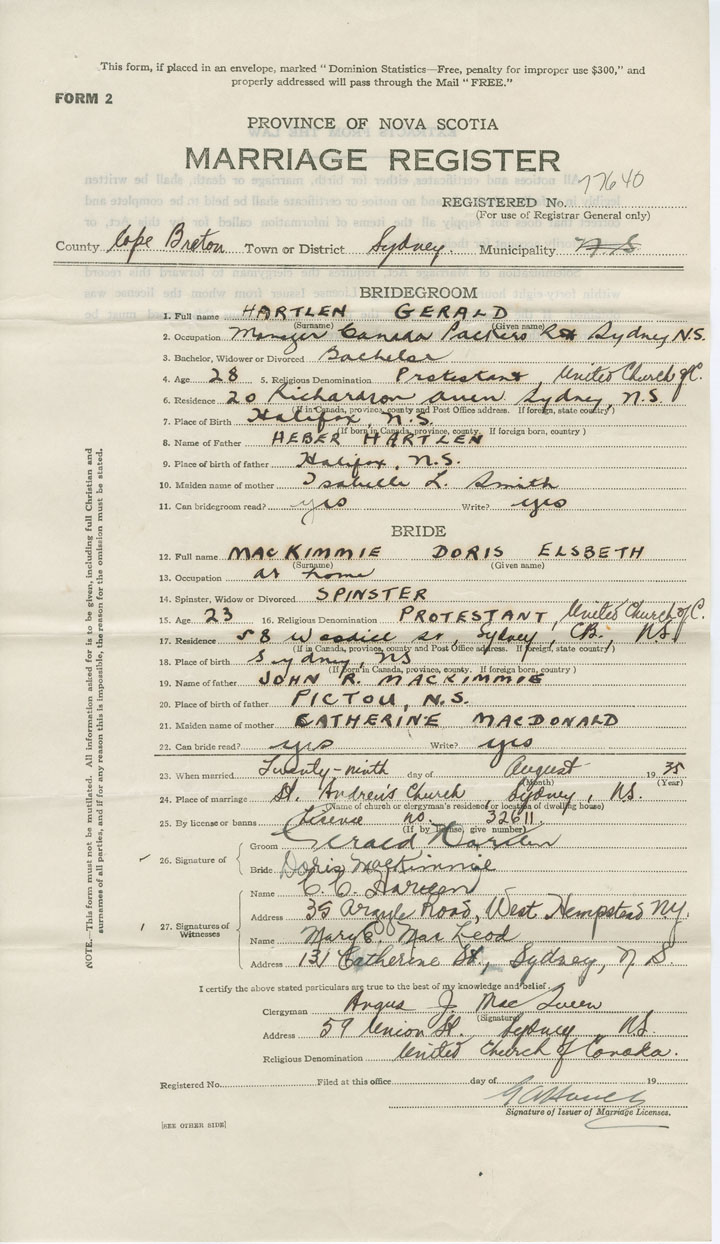 This form, if placed in an envelope, marked "Dominion Statistics—Free, penalty for improper use $300," and
properly addressed will pass through the Mail "FREE."
FORM 2
PROVINCE OF NOVA SCOTIA
MARRIAGE REGISTER
77640
REGISTERED No.
(For use of Registrar General only)
County Cape Breton Town or District Sydney. Municipality N.S
BRIDEGROOM
1. Full name HARTLEN GERALD
(Surname) (Given name)
2. Occupation Manager Canada Packers Sydney N.S.
3. Bachelor, Widower or Divorced Bachelor
4. Age 28 5. Religious Denomination Protestant, United Church of C.
6. Residence 20 Richardson Sydney, N.S.
(If in Canada, province, county and Post Office address. If foreign, state country)
7. Place of Birth Halifax, N.S.
(If born in Canada, province, county. If foreign born, country)
8. Name of Father HEBER HARTLEN
9. Place of birth of father Halifax, N.S.
10. Maiden name of mother Isabelle L. Smith
11. Can bridegroom read? yes Write? yes
BRIDE
12. Full name MACKIMMIE DORIS ELSBETH
(Surname) (Given name)
13. Occupation at home
14. Spinster, Widow or Divorced SPINSTER
15. Age 23 16. Religious Denomination PROTESTANT, United Church of C.
17. Residence 58 St, Sydney, CB., N.S
(If in Canada, province, county and Post Office address. If foreign, state country)
18. Place of birth Sydney, NS
(If born in Canada, province, county. If foreign born, country)
19. Name of father JOHN R. MACKIMMIE
20. Place of birth of father PICTOU, N.S.
21. Maiden name of mother CATHERINE MACDONALD
22. Can bride read? yes Write? yes
23. When married Twenty-ninth day of August 1935
(Month) (Year)
24. Place of marriage St. Andrew's Church, Sydney, N.S.
(Name of church or clergyman's residence or location of dwelling house)
25. By license or banns License no. 32611.
(If by license, give number)
26. Signature of
Groom Gerald Hartlen
Bride Doris MacKimmie
27. Signatures of Witnesses
Name C. C.
Address 35 Argyle Road, West Hempstead N.Y.
Name Mary C. MacLeod
Address 131 Catherine St., Sydney, N S.
I certify the above stated particulars are true to the best of my knowledge and belief.
Clergyman Angus J. MacQueen
(Signature)
Address 59 Union St. Sydney, N.S.
Religious Denomination United Church of Canada.
Registered No. Filed at this office day of 19
Signature of Issuer of Marriage Licenses.
[SEE OTHER SIDE]
NOTE.—This form must not be mutilated. All information asked for is to be given, including full Christian and
surnames of all parties, and if for any reason this is impossible, the reason for the omission must be stated.